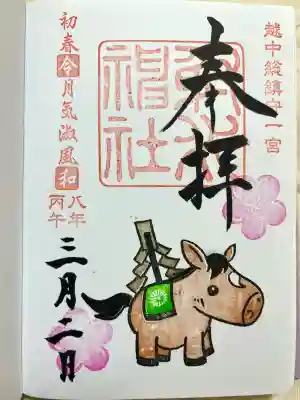 越中総鎮守一宮
奉拝
射水
神社
初春令月気淑風和
八年
丙午
三月二日